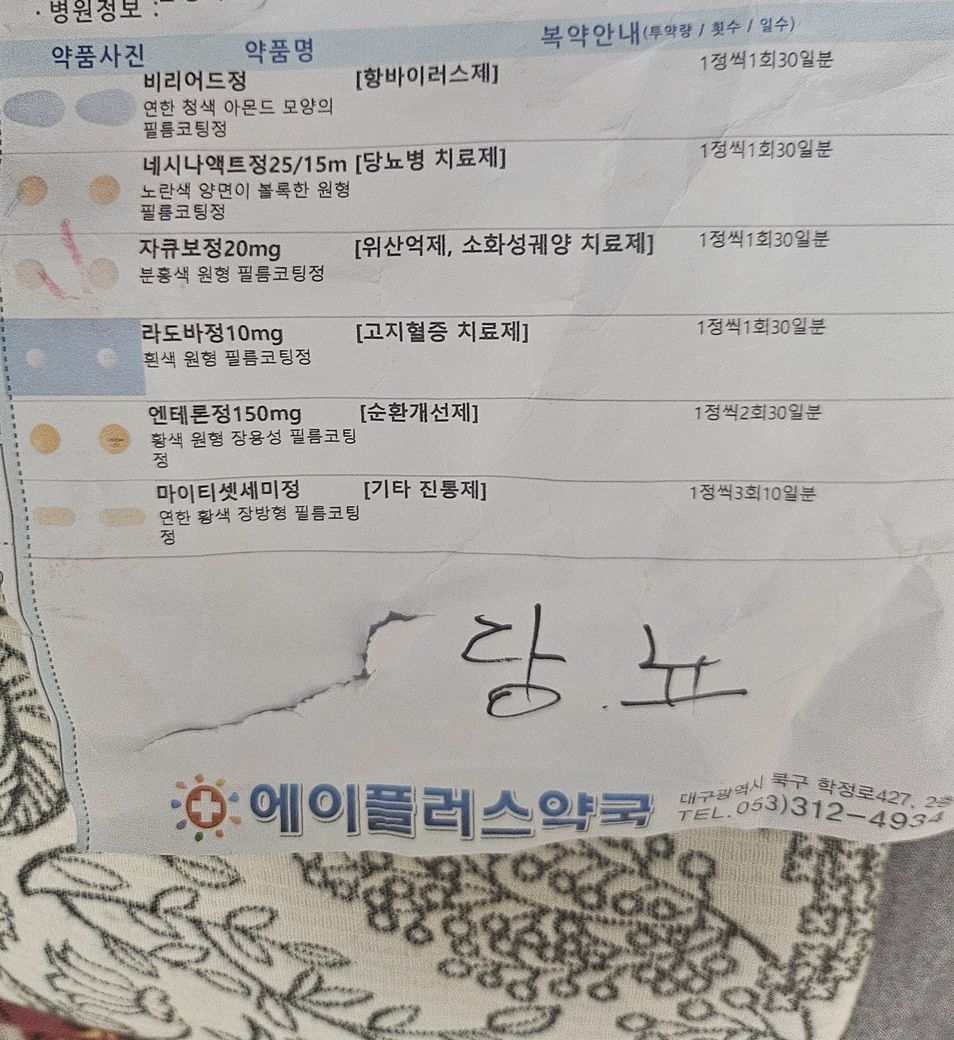 · 병원정보 :
약품사진 약품명 복약안내(투약량 / 횟수 / 일수)
비리어드정 [항바이러스제] 1정씩1회30일분
연한 청색 아몬드 모양의
필름코팅정
네시나액트정25/15m [당뇨병 치료제] 1정씩1회30일분
노란색 양면이 볼록한 원형
필름코팅정
자큐보정20mg [위산억제, 소화성궤양 치료제] 1정씩1회30일분
분홍색 원형 필름코팅정
라도바정10mg [고지혈증 치료제] 1정씩1회30일분
흰색 원형 필름코팅정
엔테론정150mg [순환개선제] 1정씩2회30일분
황색 원형 장용성 필름코팅
정
마이티셋세미정 [기타 진통제] 1정씩3회10일분
연한 황색 장방형 필름코팅
정
당.뇨
에이플러스약국
대구광역시 북구 학정로427, 2층
TEL.053)312-4934